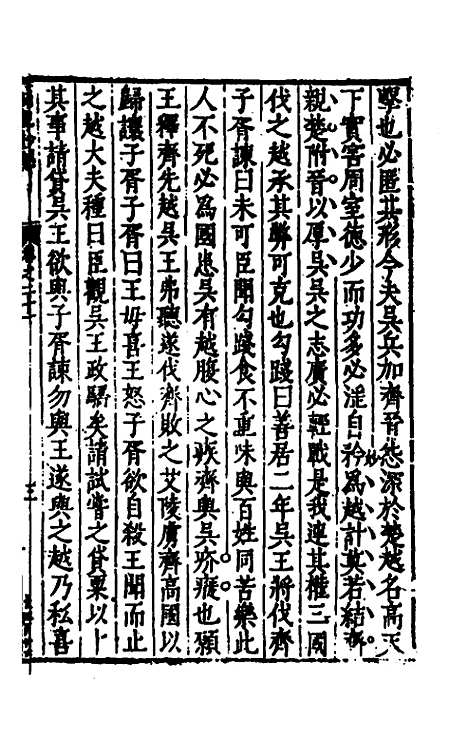 擊也必匿其形今夫吳兵加齊晉怨深於楚越名高天
下實害周室德少而功多必淫自矜爲越計莫若結齊
親楚附晉以厚吳吳之志廣必輕戰是我連其權三國
伐之越承其弊可克也勾踐曰善居二年吳王將伐齊
子胥諫曰未可臣聞勾踐食不重味與百姓同苦樂此
人不死必爲國患吳有越腹心之疾齊與吳疥癬也願
王釋齊先越吳王弗聽遂伐齊敗之艾陵虜齊高國以
歸讓子胥子胥曰王毋喜王怒子胥欲自殺王聞而止
之越大夫種曰臣觀吳王政驕矣請試嘗之貸粟以卜
其事請貸吳王欲與子胥諫勿與王遂與之越乃私喜
卷之二十一
三